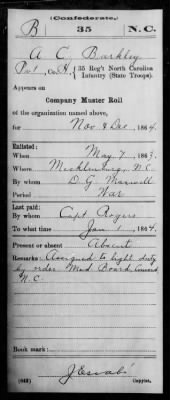 (Confederate.)
B 35 N.C.
A C Barkley
Pvt, Co. H, 35 Reg't North Carolina
Infantry (State Troops).
Appears on
Company Master Roll
of the organization named above,
for Nov & Dec, 1864.
Enlisted:
When May 7, 1863.
Where Mecklenburg, N.C.
By whom D. G. Maxwell
Period War
Last paid:
By whom Capt Rogers
To what time Jan 1, 1864.
Present or absent Absent
Remarks: Assigned to light duty
by order Med Board
N.C.
Book mark:
(642) Copyist.